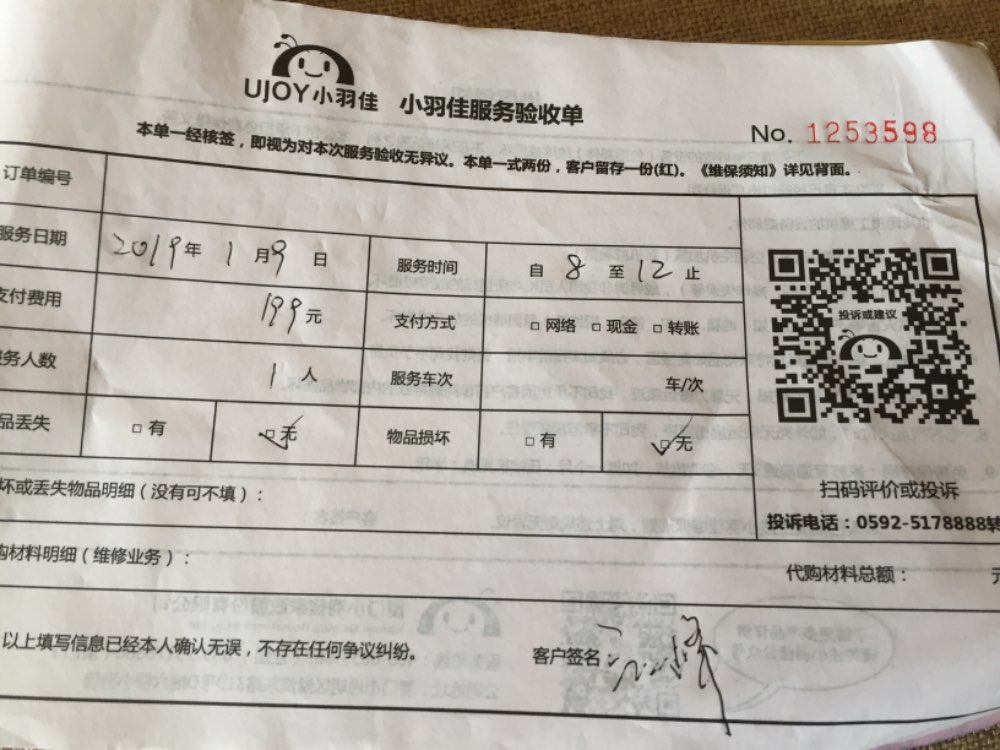 UJOY小羽佳 小羽佳服务验收单
No. 1253598
本单一经核签，即视为对本次服务验收无异议。本单一式两份，客户留存一份(红)。《维保须知》详见背面。
订单编号
服务日期 2019年 1月9日 服务时间 自 8 至 12 止
支付费用 199元 支付方式 □网络 □现金 □转账
务人数 1人 服务车次 车/次
品丢失 □有 ☑无 物品损坏 □有 ☑无
投诉或建议
扫码评价或投诉
投诉电话：0592-5178888转
坏或丢失物品明细（没有可不填）：
购材料明细（维修业务）： 代购材料总额： 元
以上填写信息已经本人确认无误，不存在任何争议纠纷。 客户签名：